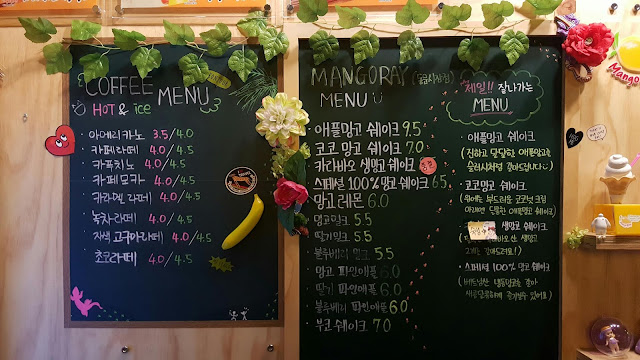 COFFEE
MENU
HOT & ice
아메리카노 3.5/4.0
카페라떼 4.0/4.5
카푸치노 4.0/4.5
카페모카 4.0/4.5
카라멜 라떼 4.0/4.5
녹차라떼 4.0/4.5
자색 고구마라떼 4.0/4.5
초코라떼 4.0/4.5
MANGORAY
MENU
애플망고 쉐이크 9.5
코코망고 쉐이크 7.0
카라바오 생망고쉐이크
스페셜 100%망고 쉐이크 6.5
망고 레몬 6.0
망고밀크 5.5
딸기밀크 5.5
블루베리 밀크 5.5
망고 파인애플 6.0
딸기 파인애플 6.0
블루베리 파인애플 6.0
부코 쉐이크 7.0
제일!! 잘나가는
MENU
· 애플망고 쉐이크
(진하고 달달한 애플망고를
슬러시처럼 갈아드립니다)
· 코코망고 쉐이크
(위에는 부드러운 코코넛 크림
아래에는 달콤한 애플망고 쉐이크)
생망고 쉐이크
· 스페셜 100% 망고 쉐이크
Mango